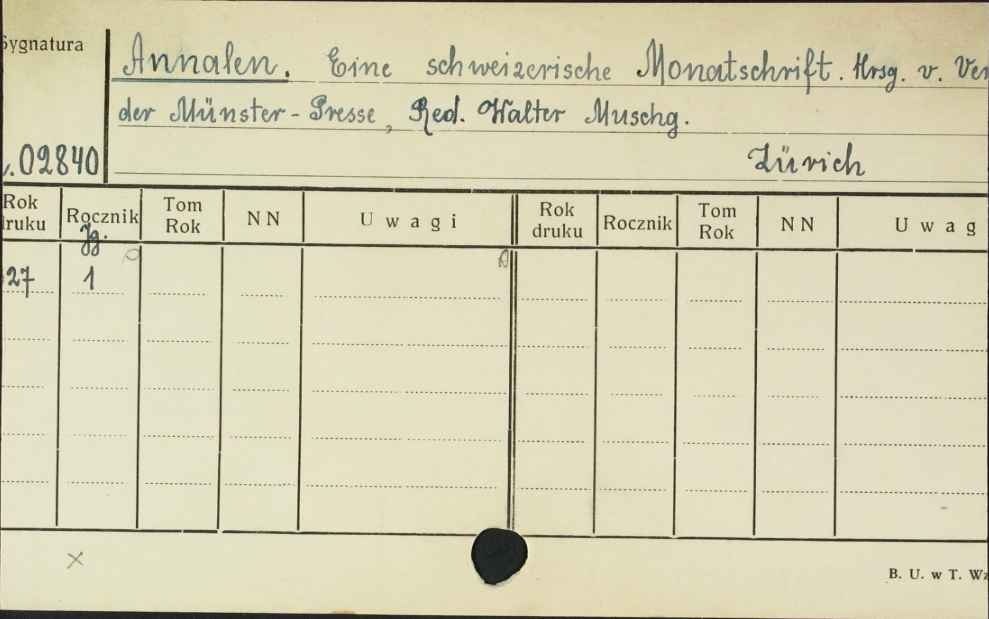 Sygnatura
Annalen. Eine schweizerische Monatschrift. Hrsg. v. Ver
der Münster-Presse, Red. Walter Muschg.
02840
Zürich
Rok druku Rocznik Tom Rok NN Uwagi Rok druku Rocznik Tom Rok NN Uwag
Jg.
27 1
B. U. w T. Wz